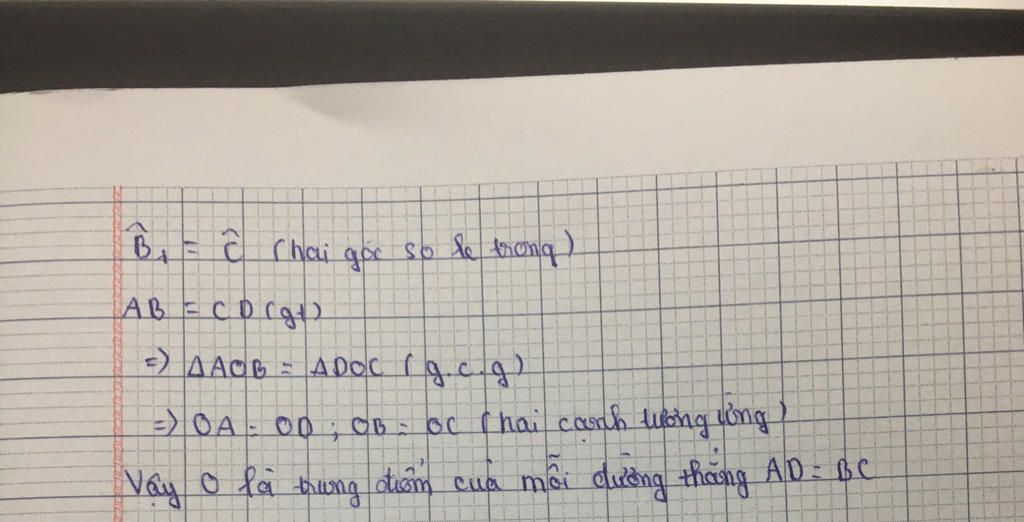 B̂₁ = Ĉ (hai góc so le trong)
AB = CD (gt)
=> ΔAOB = ΔDOC (g.c.g)
=> OA = OD ; OB = OC (hai cạnh tương ứng)
Vậy O là trung điểm của mỗi đường thẳng AD = BC